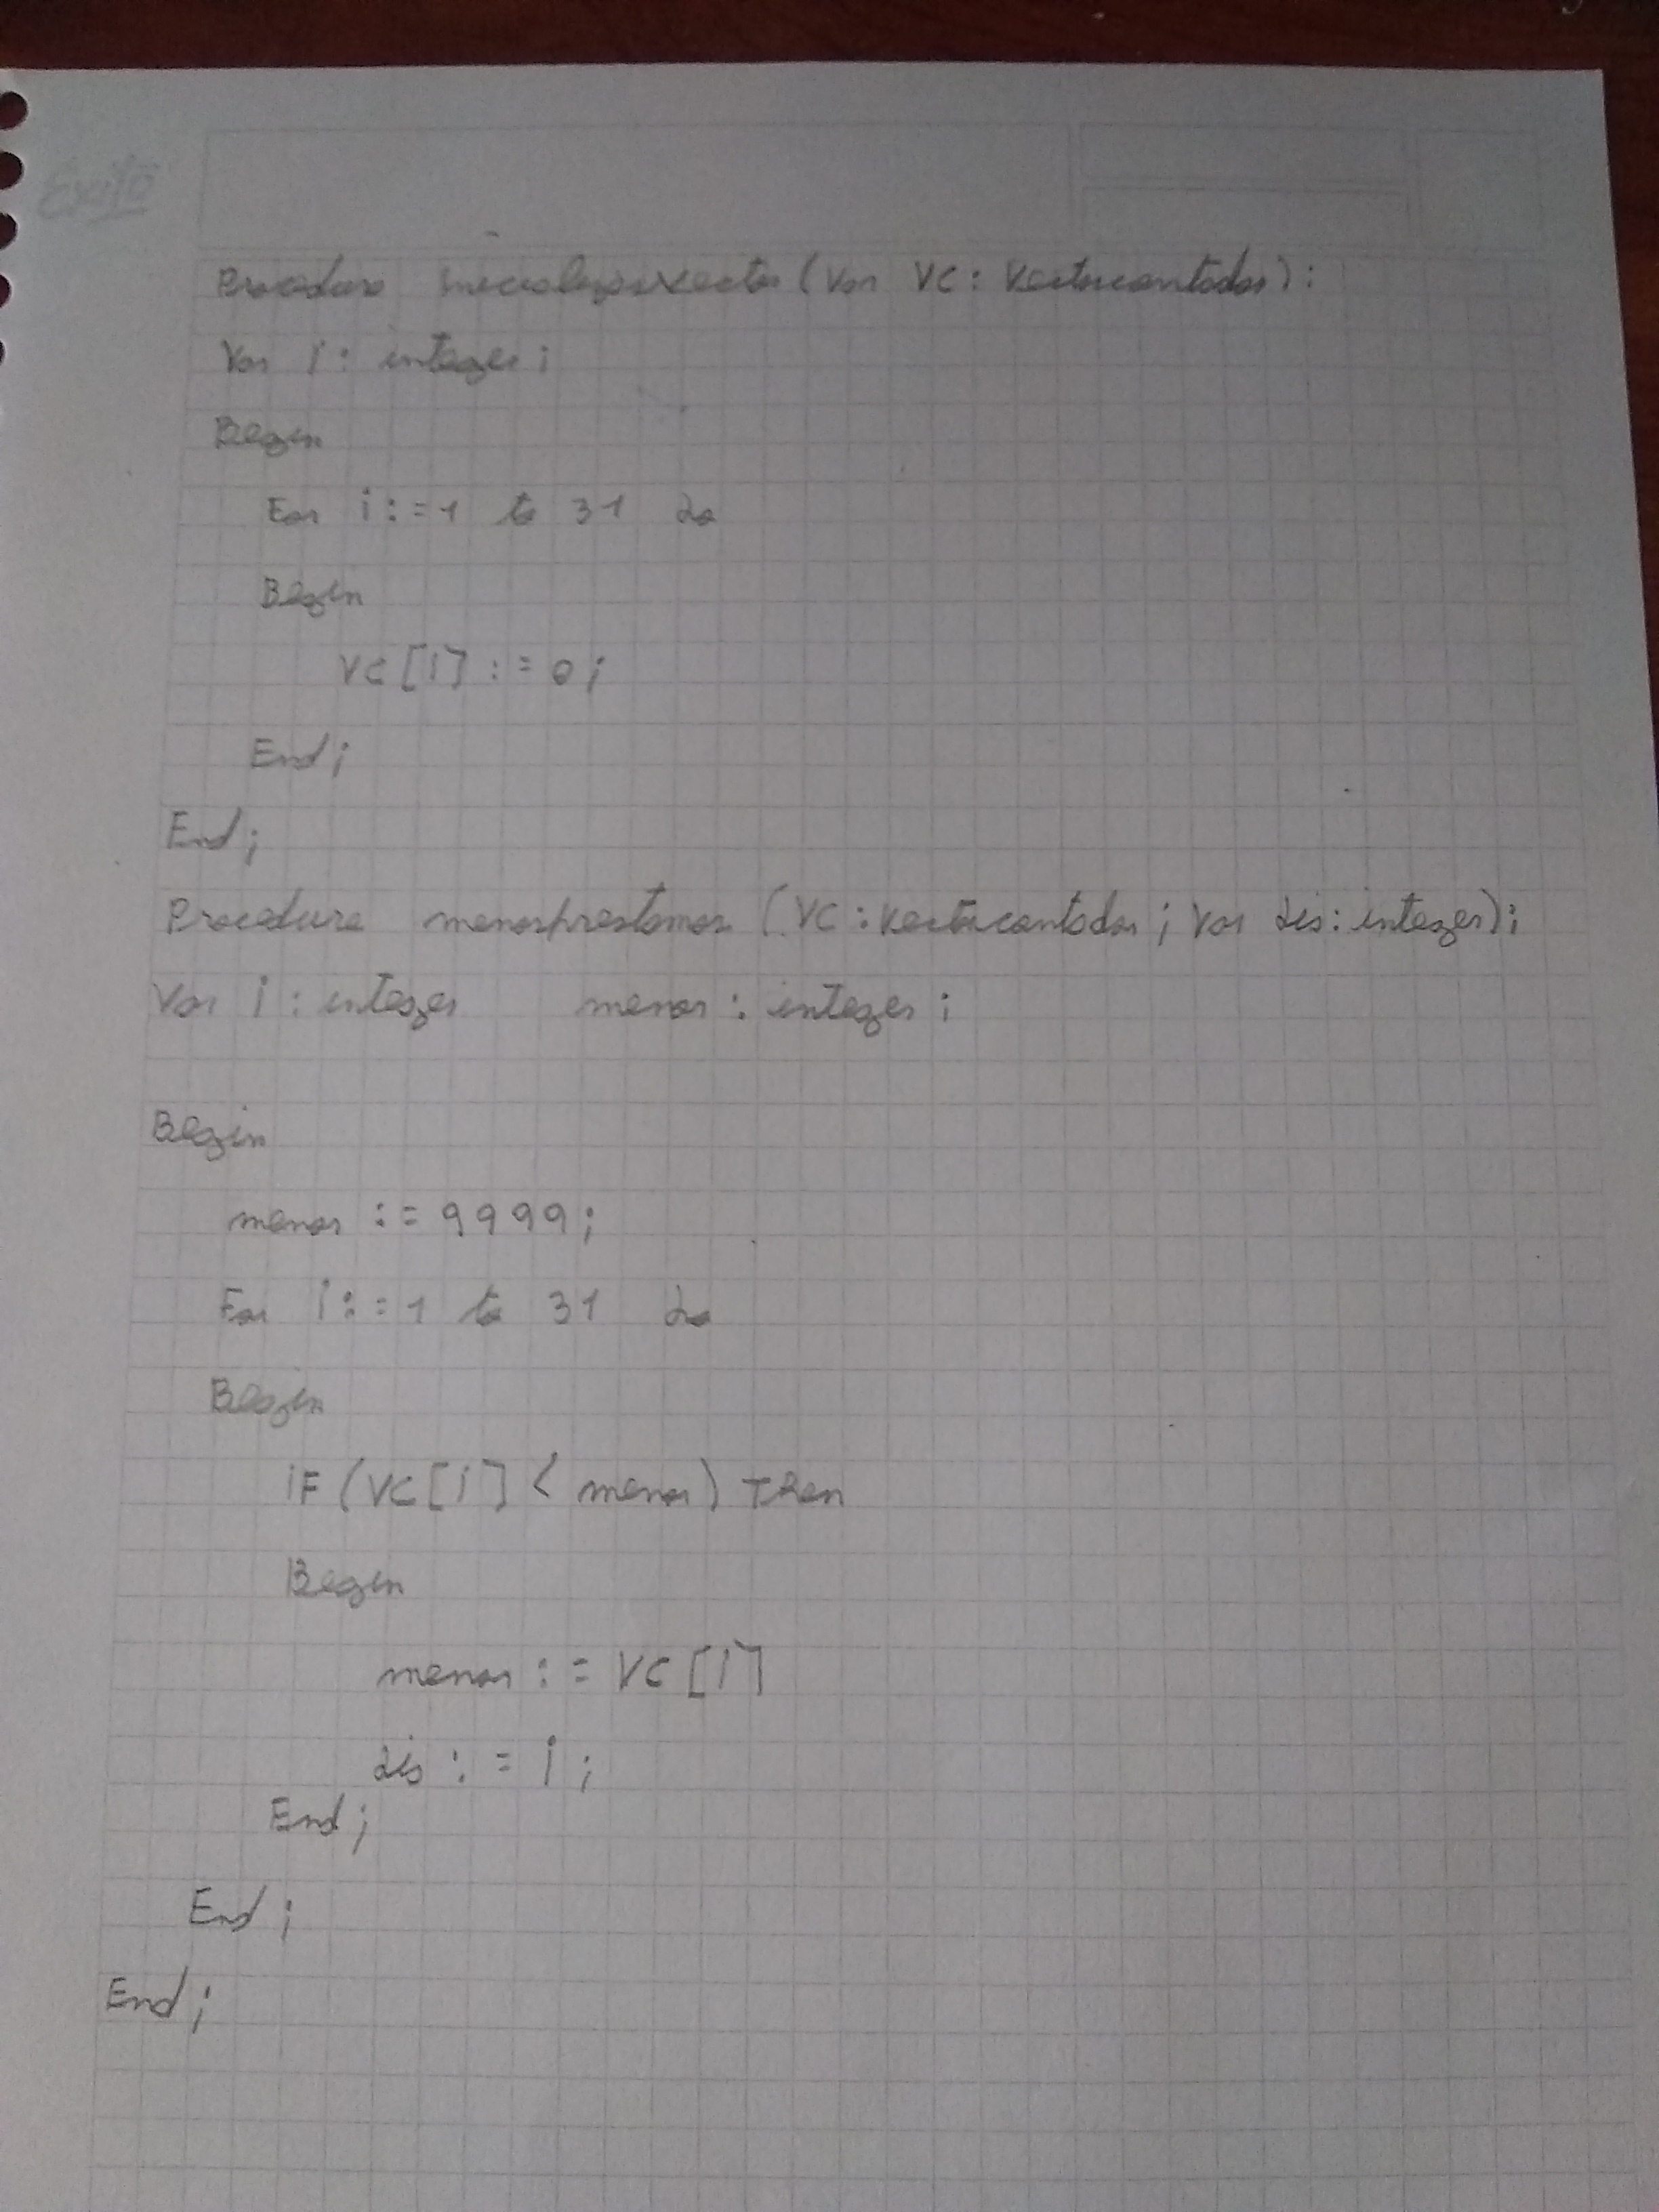 Éxito
Procedure inicializarvector (Var VC: Vectorcontador):
Var i: integer;
Begin
For i:=1 to 31 do
Begin
VC[i] := 0;
End;
End;
Procedure menosprestamos (VC: vectorcontador; Var dia: integer);
Var i: integer menor: integer;
Begin
menor := 9999;
For i:=1 to 31 do
Begin
iF (VC[i] < menor) Then
Begin
menor := VC[i]
dia := i;
End;
End;
End;